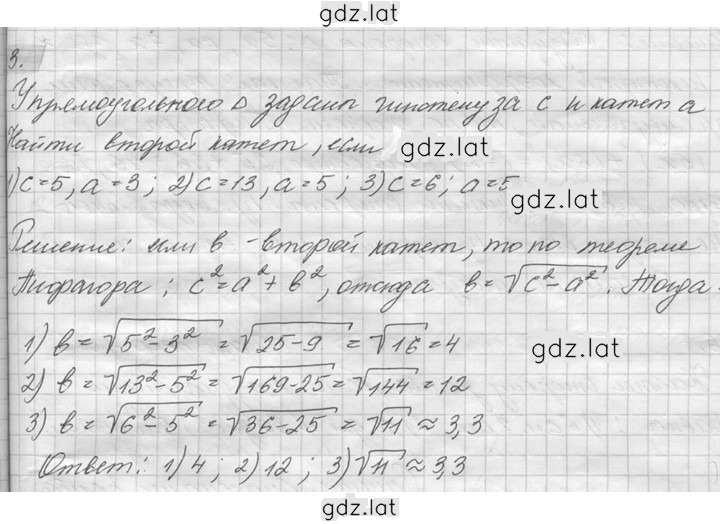 gdz.lat
3.
У прямоугольного Δ заданы гипотенуза c и катет a
Найти второй катет, если
gdz.lat
1) c=5, a=3; 2) c=13, a=5; 3) c=6; a=5
gdz.lat
Решение: или b - второй катет, то по теореме
Пифагора; c²=a²+b², откуда b=√(c²-a²). Тогда:
1) b=√(5²-3²)=√(25-9)=√16=4
gdz.lat
2) b=√(13²-5²)=√(169-25)=√144=12
3) b=√(6²-5²)=√(36-25)=√11≈3,3
Ответ: 1) 4; 2) 12; 3) √11≈3,3
gdz.lat